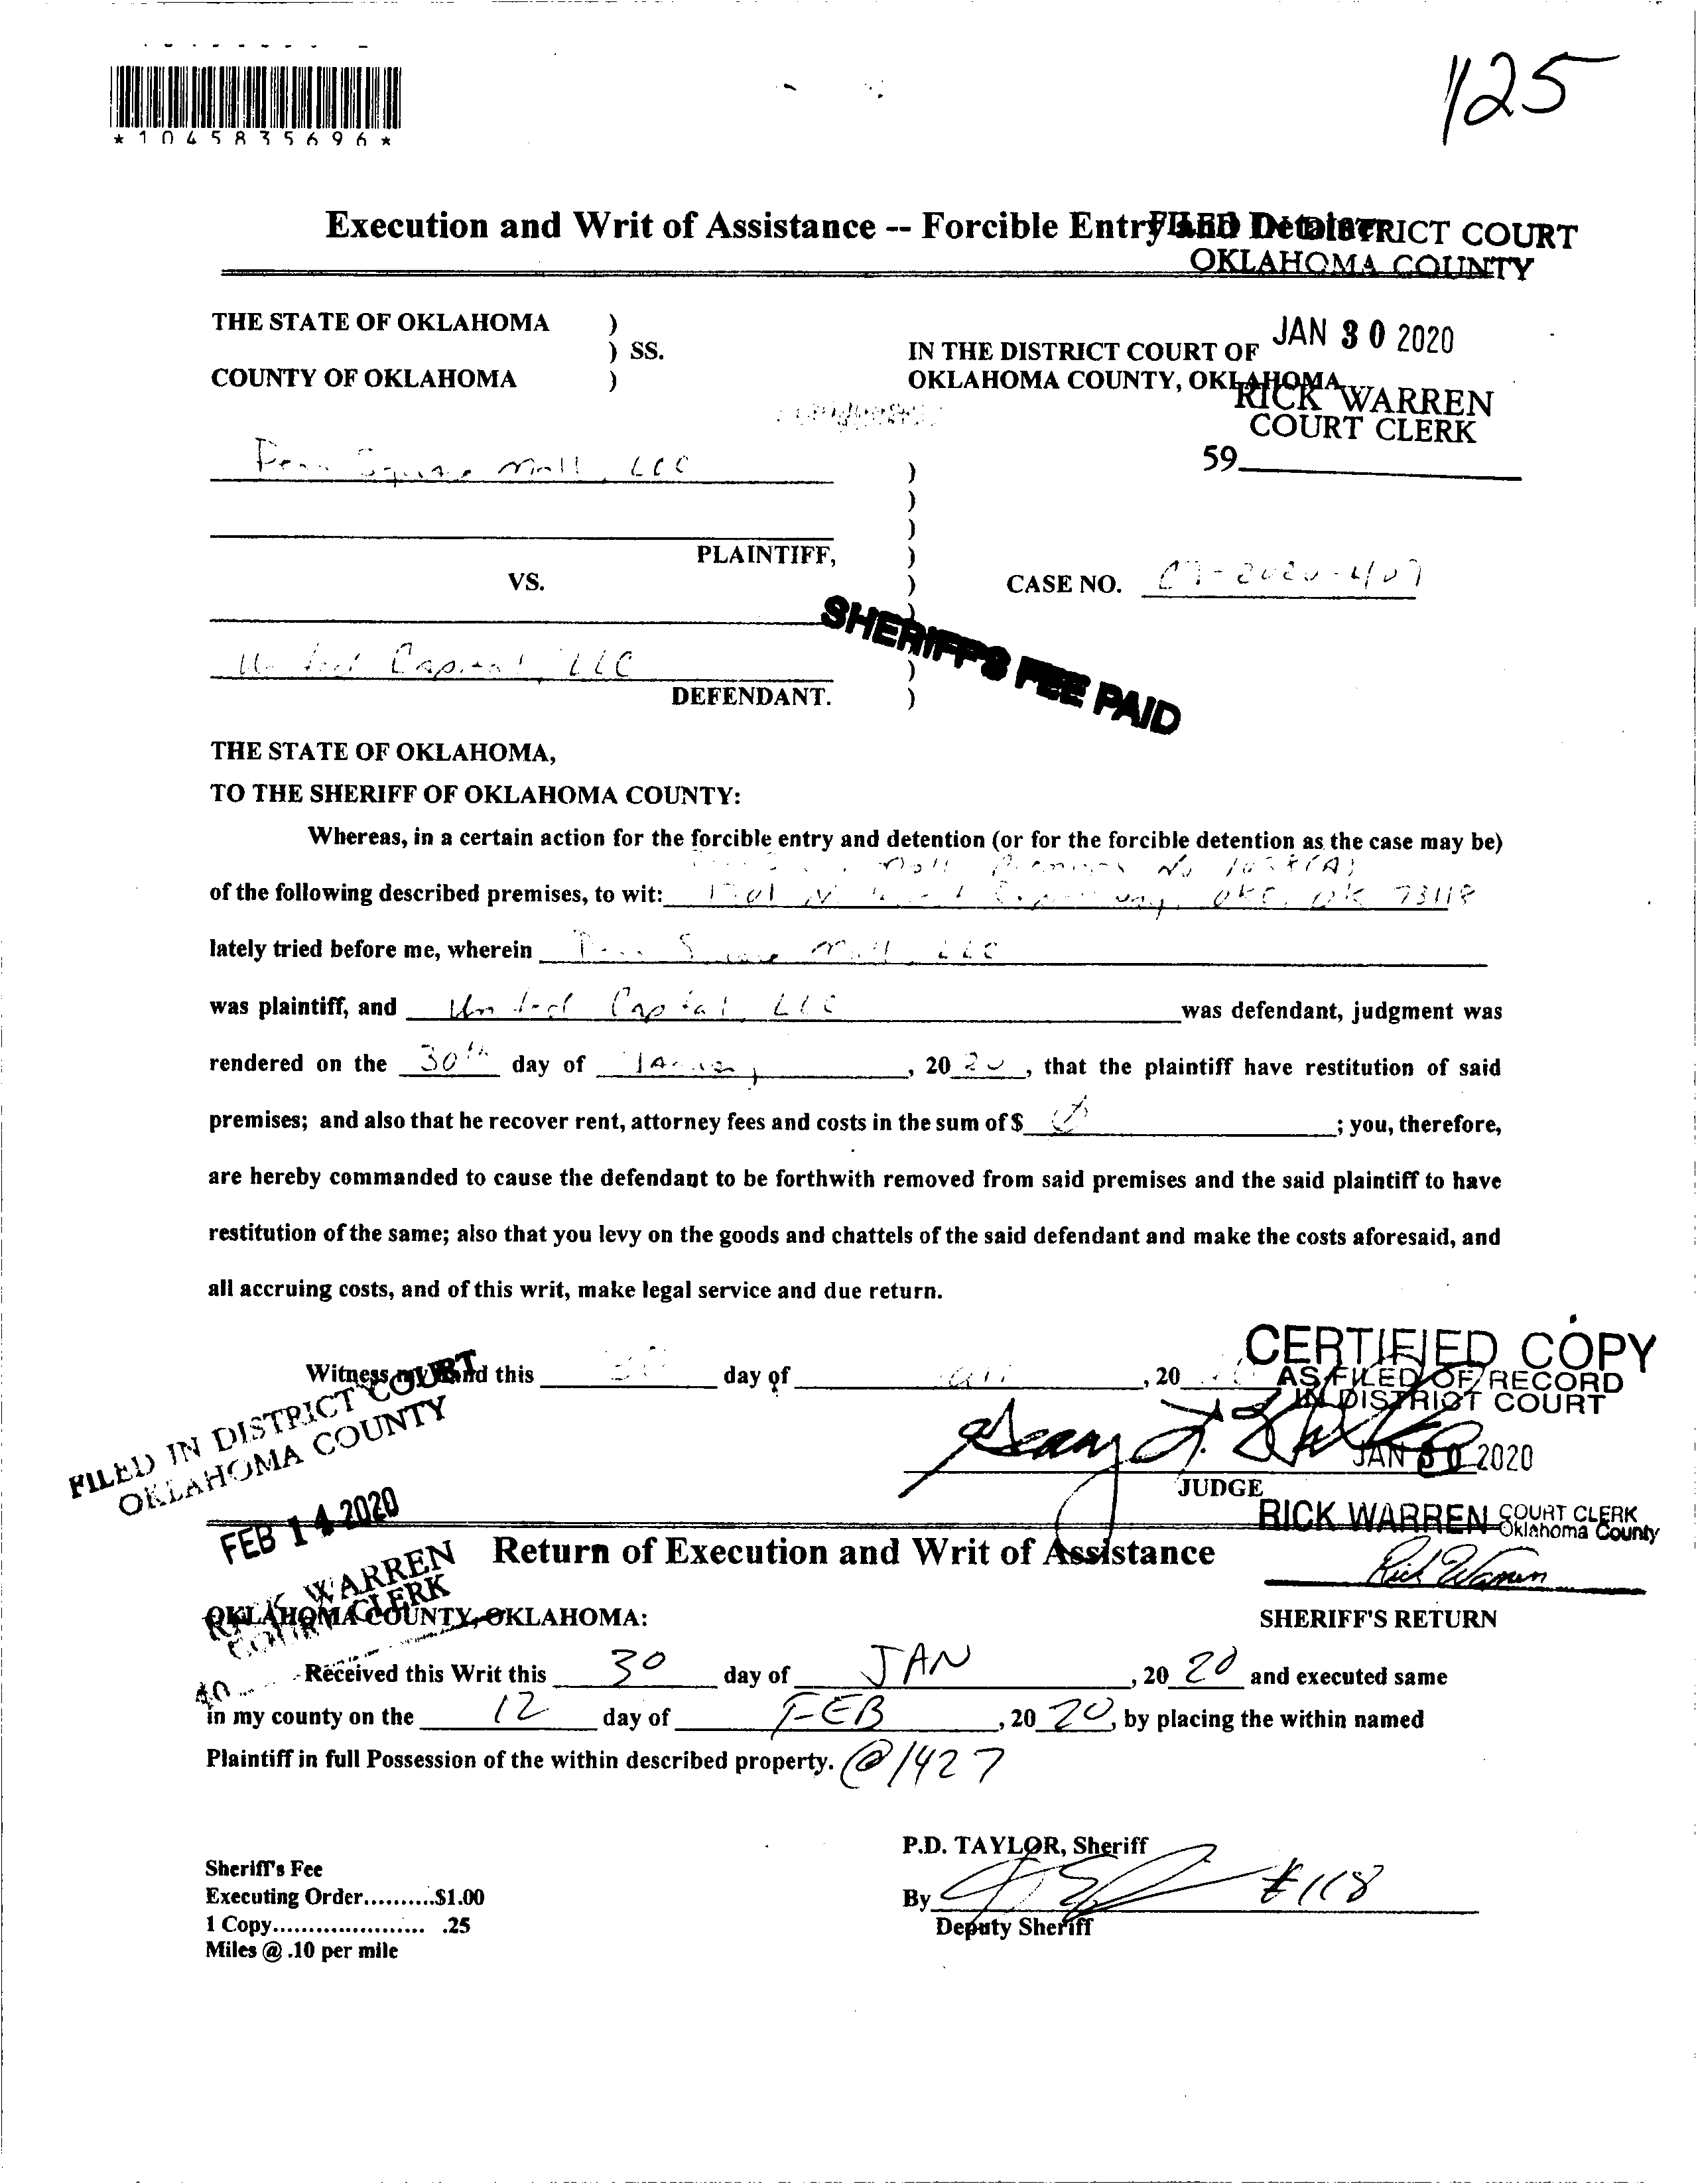 *1045835696*
1125
Execution and Writ of Assistance -- Forcible Entry and Detainer
FILED IN DISTRICT COURT
OKLAHOMA COUNTY
THE STATE OF OKLAHOMA )
) SS.
COUNTY OF OKLAHOMA )
IN THE DISTRICT COURT OF
OKLAHOMA COUNTY, OKLAHOMA
JAN 30 2020
RICK WARREN
COURT CLERK
59
Penn Square Mall, LLC )
)
)
PLAINTIFF, )
VS. )
CASE NO. -2020-407
)
SHERIFF'S FEE PAID
United Capital, LLC )
DEFENDANT. )
THE STATE OF OKLAHOMA,
TO THE SHERIFF OF OKLAHOMA COUNTY:
Whereas, in a certain action for the forcible entry and detention (or for the forcible detention as the case may be)
Mall Premises No
of the following described premises, to wit: OKC, OK 73118
lately tried before me, wherein Penn Square Mall, LLC
was plaintiff, and United Capital, LLC was defendant, judgment was
rendered on the 30th day of January, 2020, that the plaintiff have restitution of said
premises; and also that he recover rent, attorney fees and costs in the sum of $ Ø ; you, therefore,
are hereby commanded to cause the defendant to be forthwith removed from said premises and the said plaintiff to have
restitution of the same; also that you levy on the goods and chattels of the said defendant and make the costs aforesaid, and
all accruing costs, and of this writ, make legal service and due return.
Witness my hand this 30 day of Jan, 20
CERTIFIED COPY
AS FILED OF RECORD
IN DISTRICT COURT
JAN 30 2020
JUDGE
RICK WARREN COURT CLERK
Oklahoma County
Rick Warren
FILED IN DISTRICT COURT
OKLAHOMA COUNTY
FEB 14 2020
RICK WARREN
COURT CLERK
40
Return of Execution and Writ of Assistance
OKLAHOMA COUNTY, OKLAHOMA: SHERIFF'S RETURN
Received this Writ this 30 day of JAN, 20 20 and executed same
in my county on the 12 day of FEB, 20 20, by placing the within named
Plaintiff in full Possession of the within described property. @ 1427
P.D. TAYLOR, Sheriff
By #118
Deputy Sheriff
Sheriff's Fee
Executing Order..........$1.00
1 Copy...................... .25
Miles @ .10 per mile